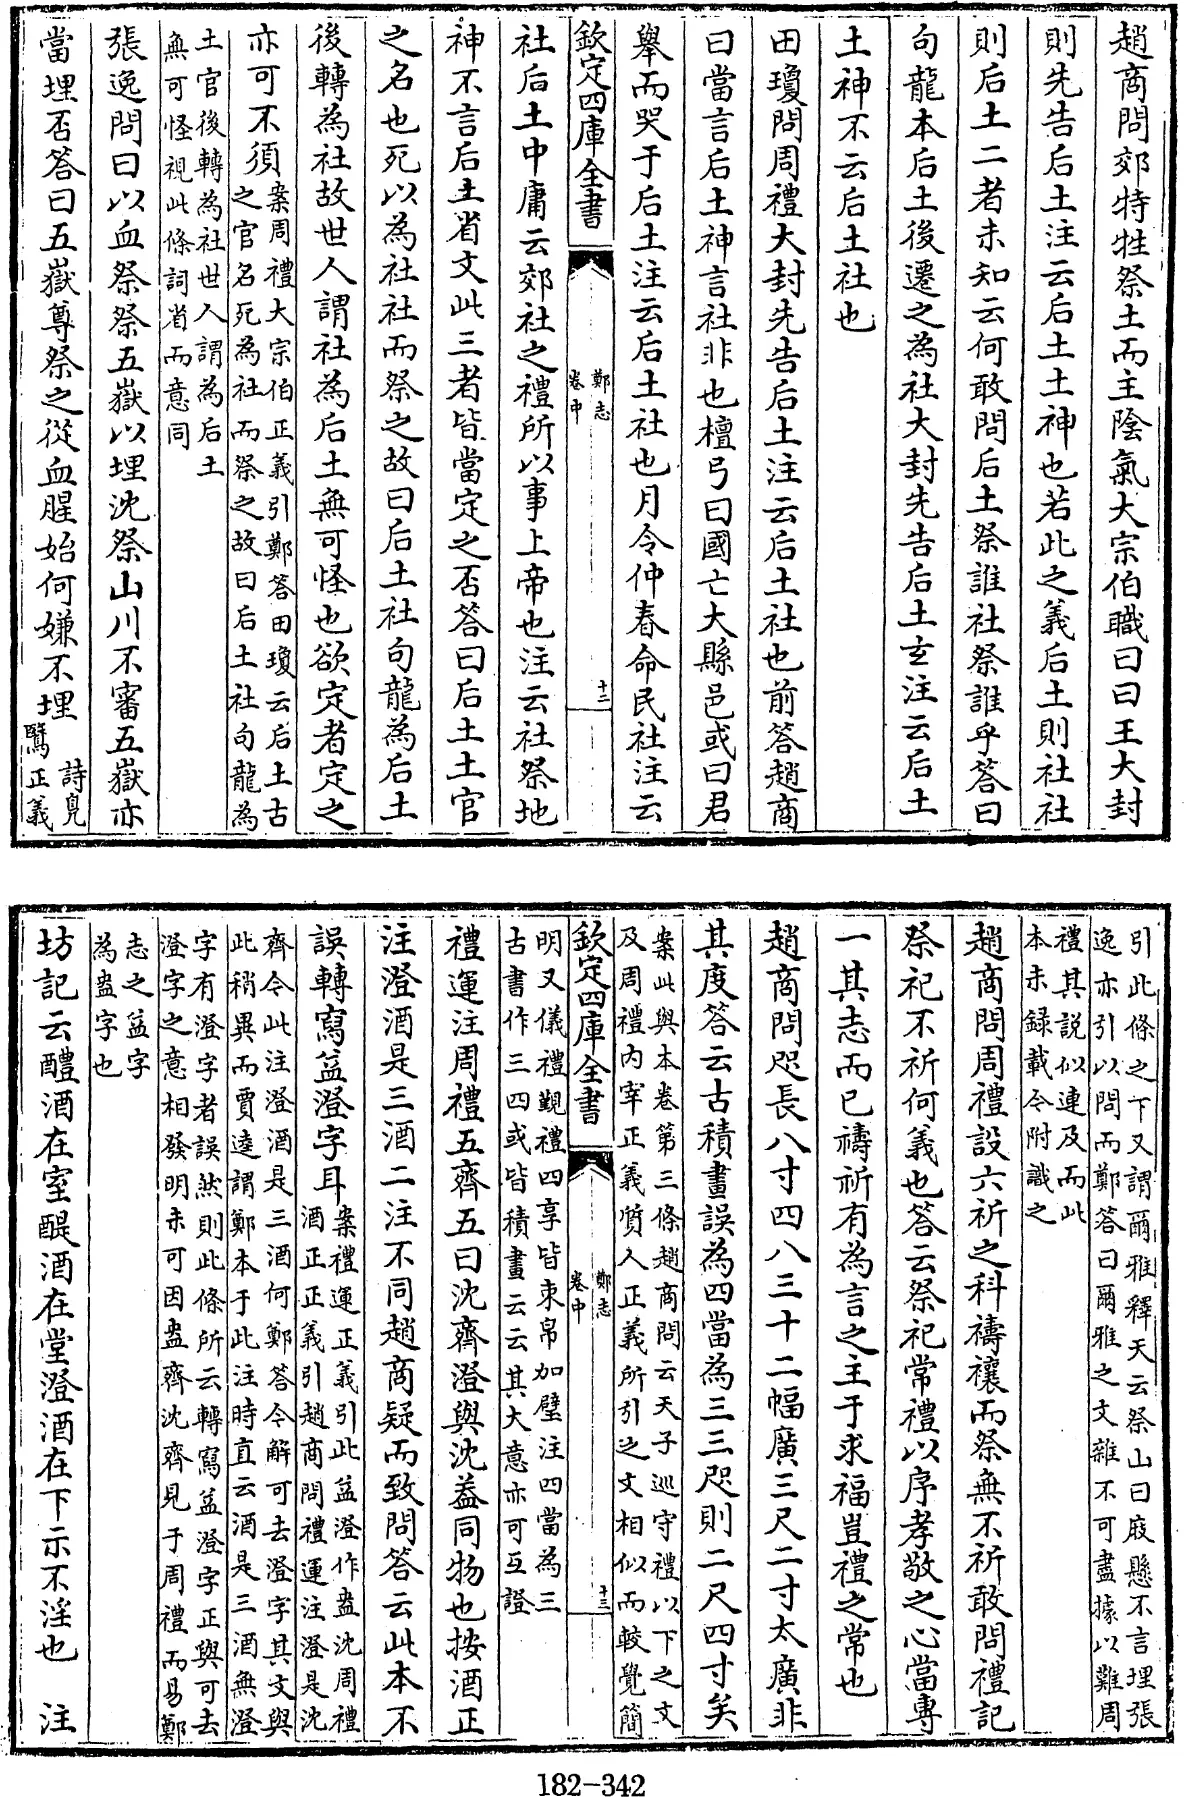 趙商問郊特牲祭土而主陰氣大宗伯職曰曰王大封
則先告后土注云后土土神也若此之義后土則社社
則后土二者未知云何敢問后土祭誰社祭誰乎答曰
句龍本后土後遷之為社大封先告后土玄注云后土
土神不云后土社也
田瓊問周禮大封先告后土注云后土社也前答趙商
曰當言后土神言社非也檀弓曰國亡大縣邑或曰君
舉而哭于后土注云后土社也月令仲春命民社注云
欽定四庫全書
鄭志
卷中
十二
社后土中庸云郊社之禮所以事上帝也注云社祭地
神不言后土省文此三者皆當定之否答曰后土土官
之名也死以為社社而祭之故曰后土社句龍為后土
後轉為社故世人謂社為后土無可怪也欲定者定之
亦可不須
案周禮大宗伯正義引鄭答田瓊云后土古
之官名死為社而祭之故曰后土社句龍為
土官後轉為社世人謂為后土
無可怪視此條詞省而意同
張逸問曰以血祭祭五嶽以埋沈祭山川不審五嶽亦
當埋否答曰五嶽尊祭之從血腥始何嫌不埋
詩鳧
鷖正義
引此條之下又謂爾雅釋天云祭山曰庪懸不言埋張
逸亦引以問而鄭答曰爾雅之文雜不可盡據以難周
禮其説似連及而此
本未録載今附識之
趙商問周禮設六祈之科禱禳而祭無不祈敢問禮記
祭祀不祈何義也答云祭祀常禮以序孝敬之心當專
一其志而已禱祈有為言之主于求福豈禮之常也
趙商問咫長八寸四八三十二幅廣三尺二寸太廣非
其度答云古積畫誤為四當為三三咫則二尺四寸矣
案此與本卷第三條趙商問云天子巡守禮以下之文
及周禮內宰正義質人正義所引之文相似而較覺簡
欽定四庫全書
鄭志
卷中
十三
明又儀禮覲禮四享皆束帛加璧注四當為三
古書作三四或皆積畫云云其大意亦可互證
禮運注周禮五齊五曰沈齊澄與沈葢同物也按酒正
注澄酒是三酒二注不同趙商疑而致問答云此本不
誤轉寫益澄字耳
案禮運正義引此益澄作盎沈周禮
酒正正義引趙商問禮運注澄是沈
齊今此注澄酒是三酒何鄭答今解可去澄字其文與
此稍異而賈逵謂鄭本于此注時直云酒是三酒無澄
字有澄字者誤然則此條所云轉寫益澄字正與可去
澄字之意相發明未可因盎齊沈齊見于周禮而易鄭
志之益字
為盎字也
坊記云醴酒在室醍酒在堂澄酒在下示不淫也　注
182-342